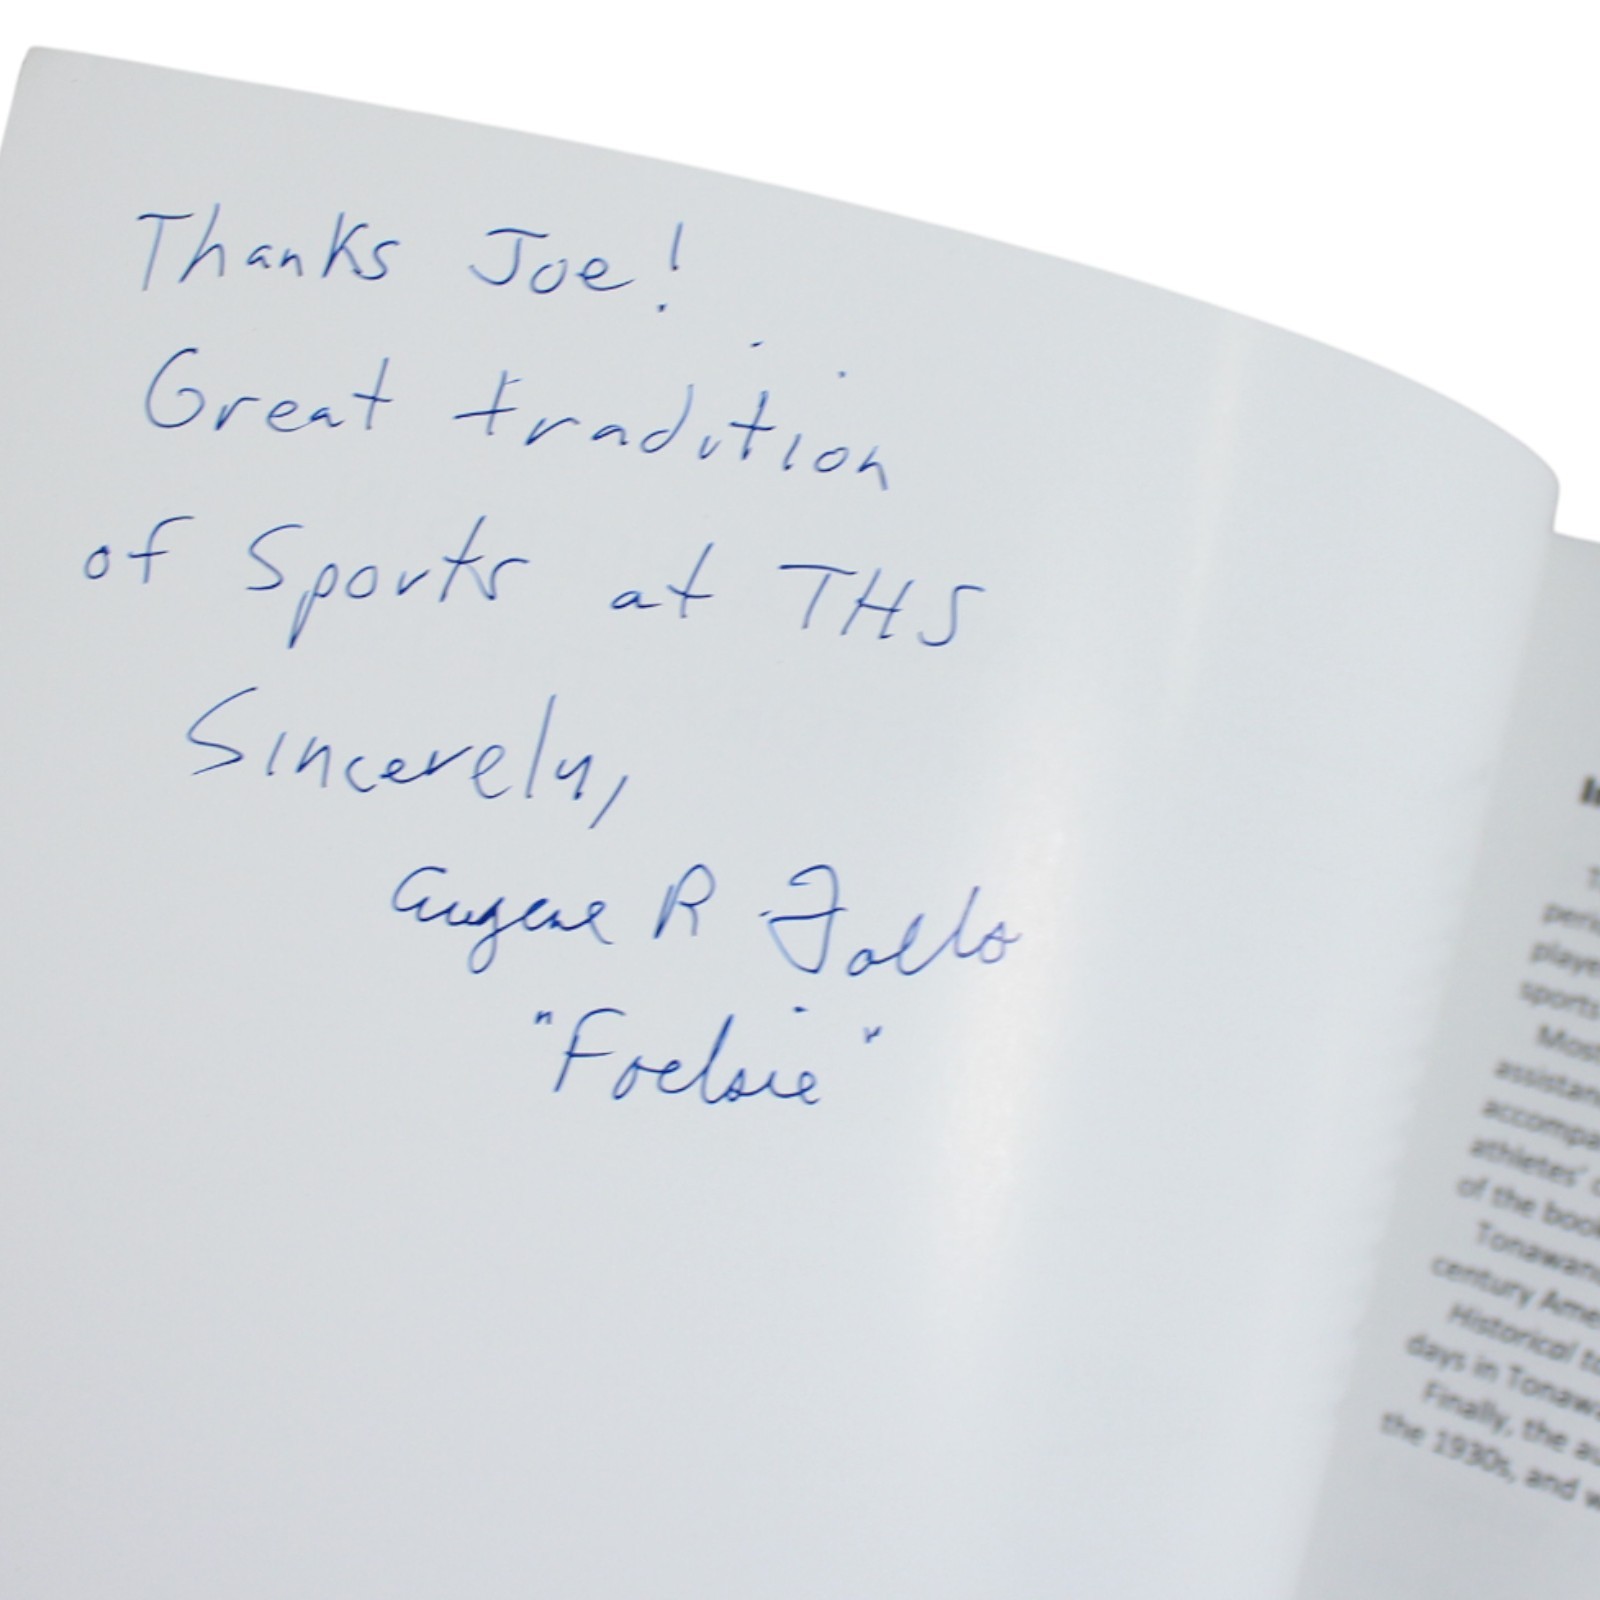 Thanks Joe!
Great tradition
of Sports at THS
Sincerely,
Eugene R Foels
"Foelsie"
peri
playe
sports
Most
assistan
accompa
athletes'
of the book
Tonawan
century Ame
Historical to
days in Tonawa
Finally, the au
the 1930s, and w